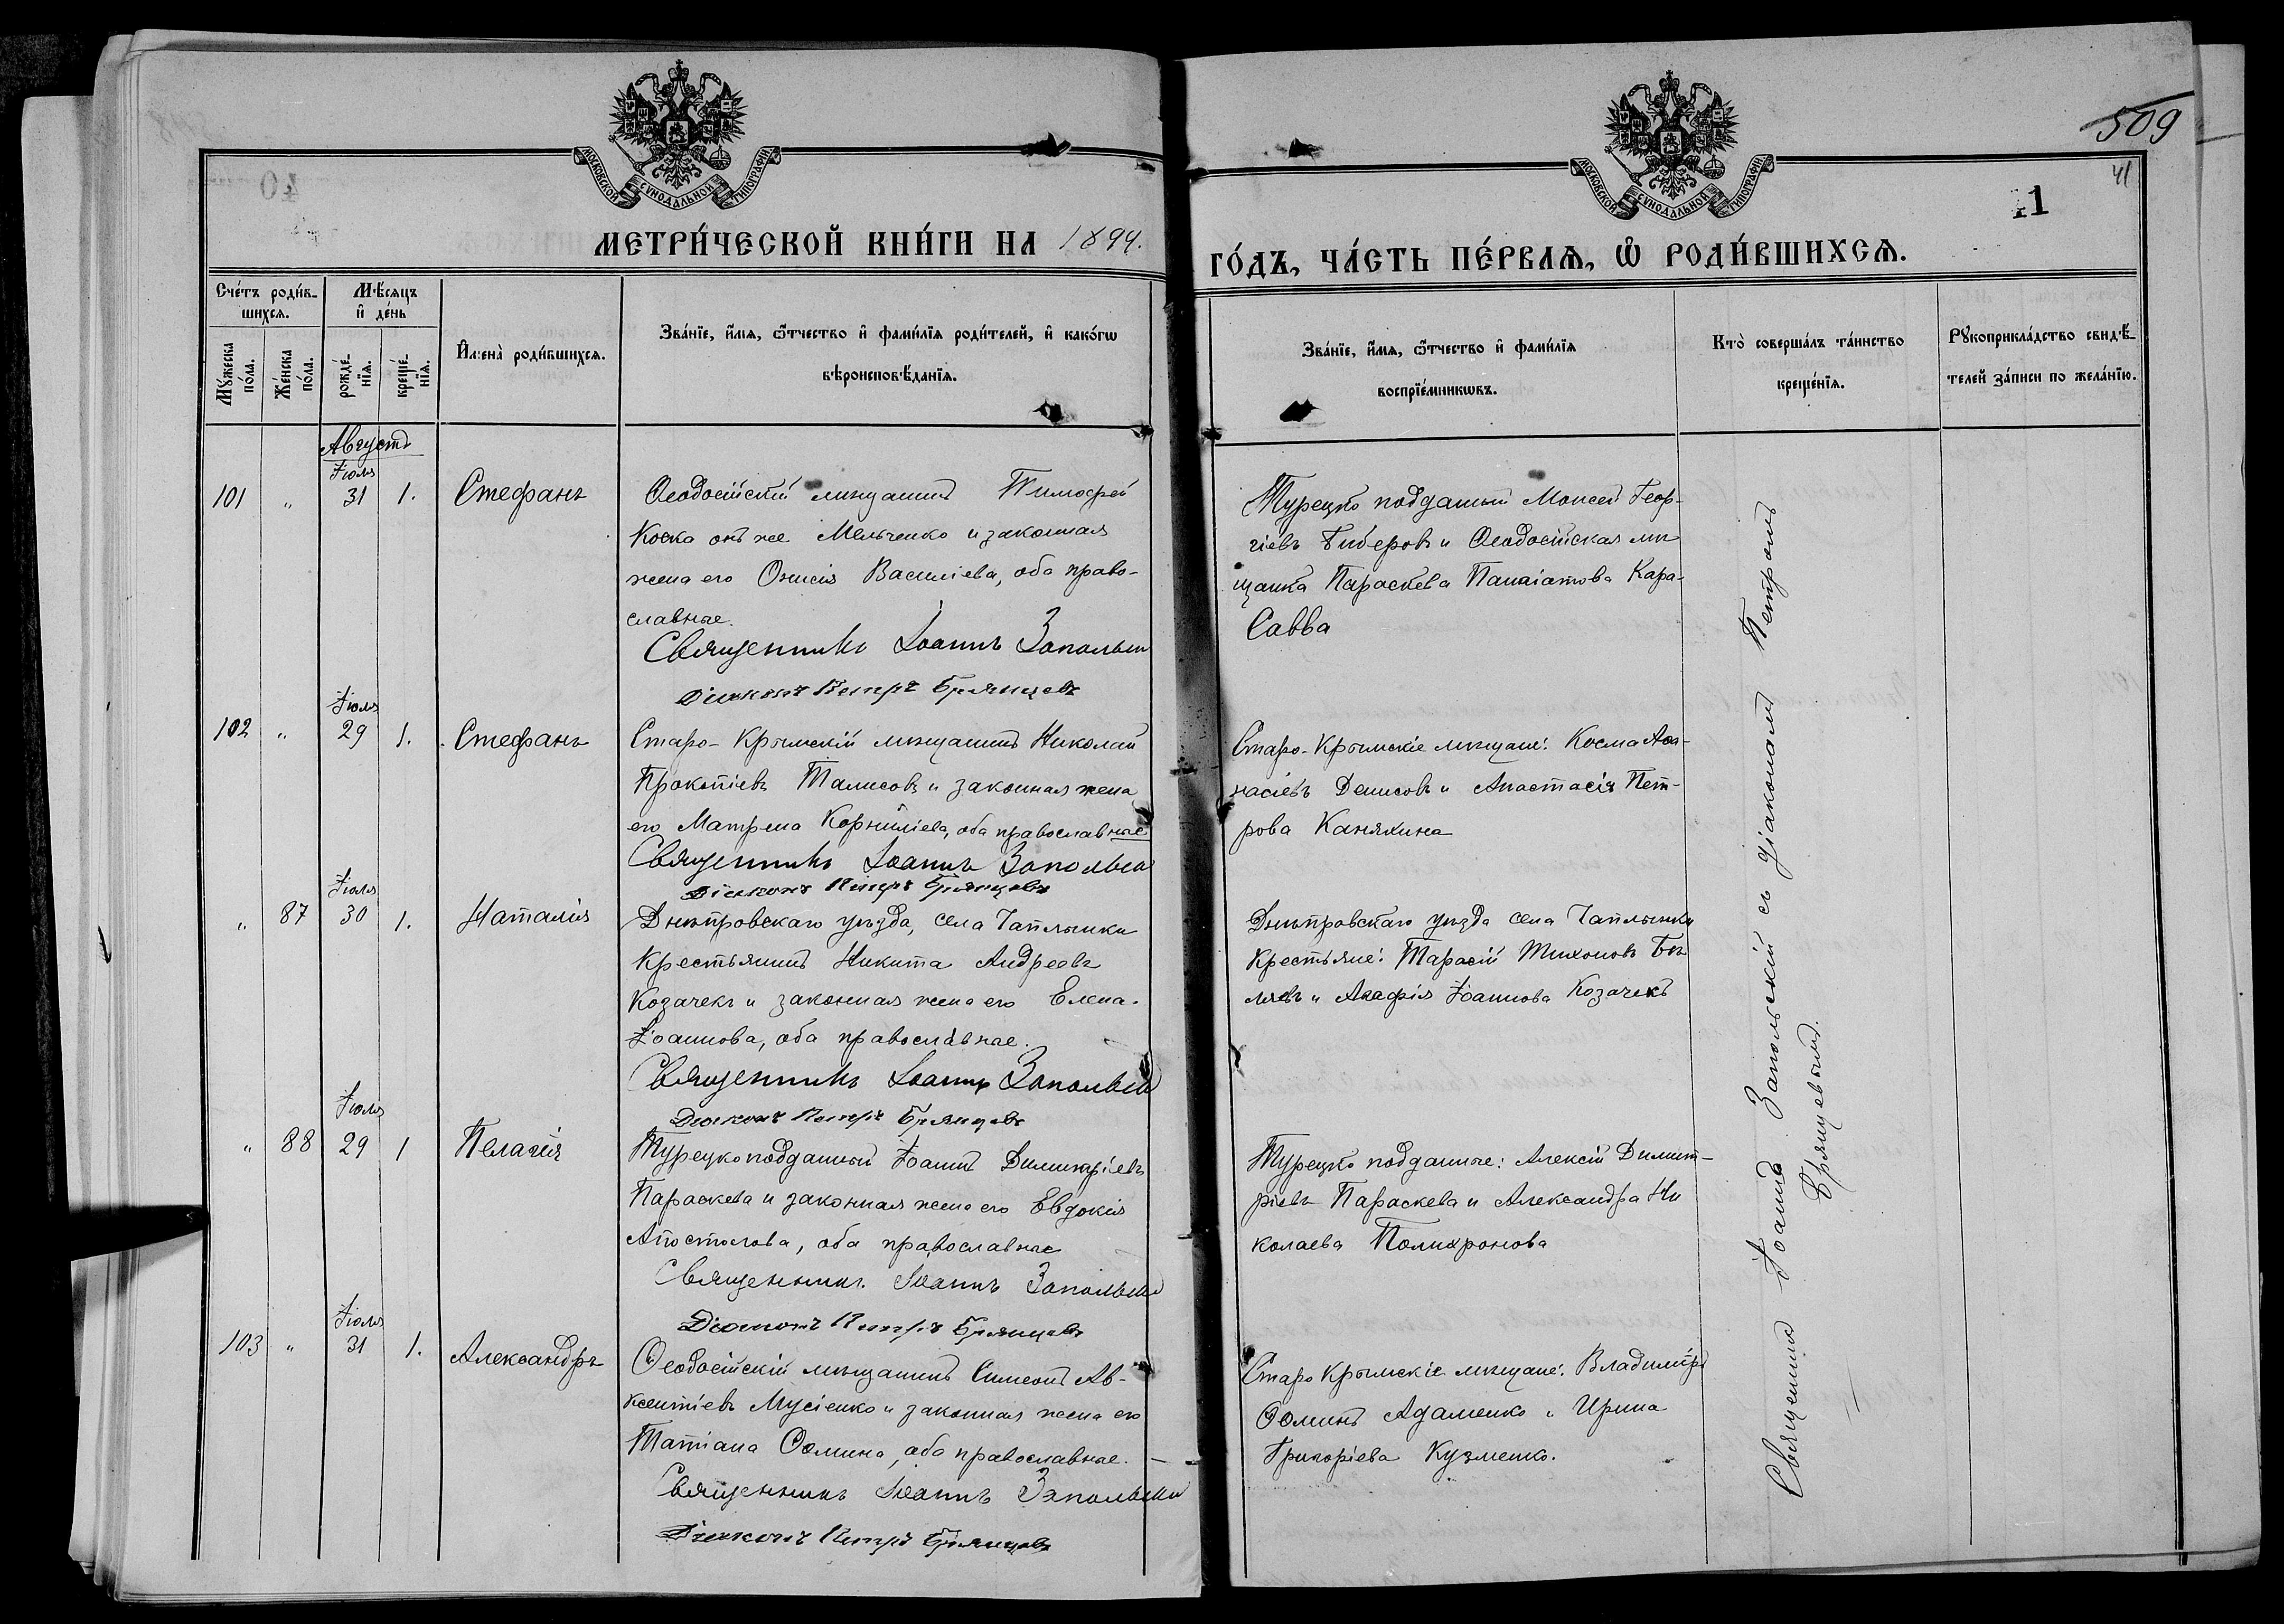 509
41
41
МОСКОВСКОЙ СѴНОДАЛЬНОЙ ТИПОГРАФІИ
МОСКОВСКОЙ СѴНОДАЛЬНОЙ ТИПОГРАФІИ
МЕТРИ́ЧЕСКОЙ КНИ́ГИ НА 1894.
ГО́ДЪ, ЧА́СТЬ ПЕ́РВАѦ, Ѡ҆ РОДИ́ВШИХСѦ.
Сче́тъ роди́в-
шихсѧ.
Мꙋ́жеска по́ла.
Же́нска по́ла.
Мѣ́сѧцъ
и҆ де́нь
рожде́-нїѧ.
креще́-нїѧ.
И҆мена̀ роди́вшихсѧ.
Зва́нїе, и҆́мѧ, ѻ҆́тчество и҆ фами́лїѧ роди́телей, и҆ како́гѡ
вѣроисповѣ́данїѧ.
Зва́нїе, и҆́мѧ, ѻ҆́тчество и҆ фами́лїѧ
воспрїе́мникѡвъ.
Кто̀ соверша́лъ та́инство
креще́нїѧ.
Рꙋкоприкла́дство свидѣ́-
телей за́писи по жела́нїю.
Августъ
Іюля
101 " 31 1. Стефанъ
Ѳеодосійскій мѣщанинъ Тимофей
Коска онъ же Мельченко и законная
жена его Онисія Василіева, оба право-
славные.
Священникъ Іоаннъ Запольскій
Діаконъ Петръ Брянцевъ
Турецко подданный Моисей Геор-
гіевъ Биберовъ и Ѳеодосійская мѣ
щанка Параскева Панаіотова Кара-
Савва
Іюля
102 " 29 1. Стефанъ
Старо-Крымскій мѣщанинъ Николай
Прокопіевъ Талисовъ и законная жена
его Матрена Корниліева, оба православные
Священникъ Іоаннъ Запольскій
Діаконъ Петръ Брянцевъ
Старо-Крымскіе мѣщане: Косма Аѳа-
насіевъ Денисовъ и Анастасія Пет-
рова Канякина
Іюля
" 87 30 1. Наталія
Днѣпровскаго уѣзда, села Чаплынки
Крестьянинъ Никита Андреевъ
Козачекъ и законная жена его Елена
Іоаннова, оба православные.
Священникъ Іоаннъ Запольскій
Діаконъ Петръ Брянцевъ
Днѣпровскаго уѣзда села Чаплынки
Крестьяне: Тарасій Тихоновъ Бѣ
ляевъ и Агафія Іоаннова Козачекъ
Іюля
" 88 29 1 Пелагія
Турецкоподданный Іоаннъ Димитріевъ
Параскева и законная жена его Евдокія
Апостолова, оба православные
Священникъ Іоаннъ Запольскій
Діаконъ Петръ Брянцевъ
Турецко подданные: Алексій Димит-
ріевъ Параскева и Александра Ни
колаева Полихронова
Іюля
103 " 31 1. Александръ
Ѳеодосійскій мѣщанинъ Симеонъ Ав-
ксентіевъ Мусіенко и законная жена его
Татіана Ѳомина, оба православные.
Священникъ Іоаннъ Запольскій
Діаконъ Петръ Брянцевъ
Старо Крымскіе мѣщане: Владиміръ
Ѳоминъ Адаменко и Ирина
Григоріева Кузменко.
Священникъ Іоаннъ Запольскій съ діакономъ Петромъ
Брянцевымъ.